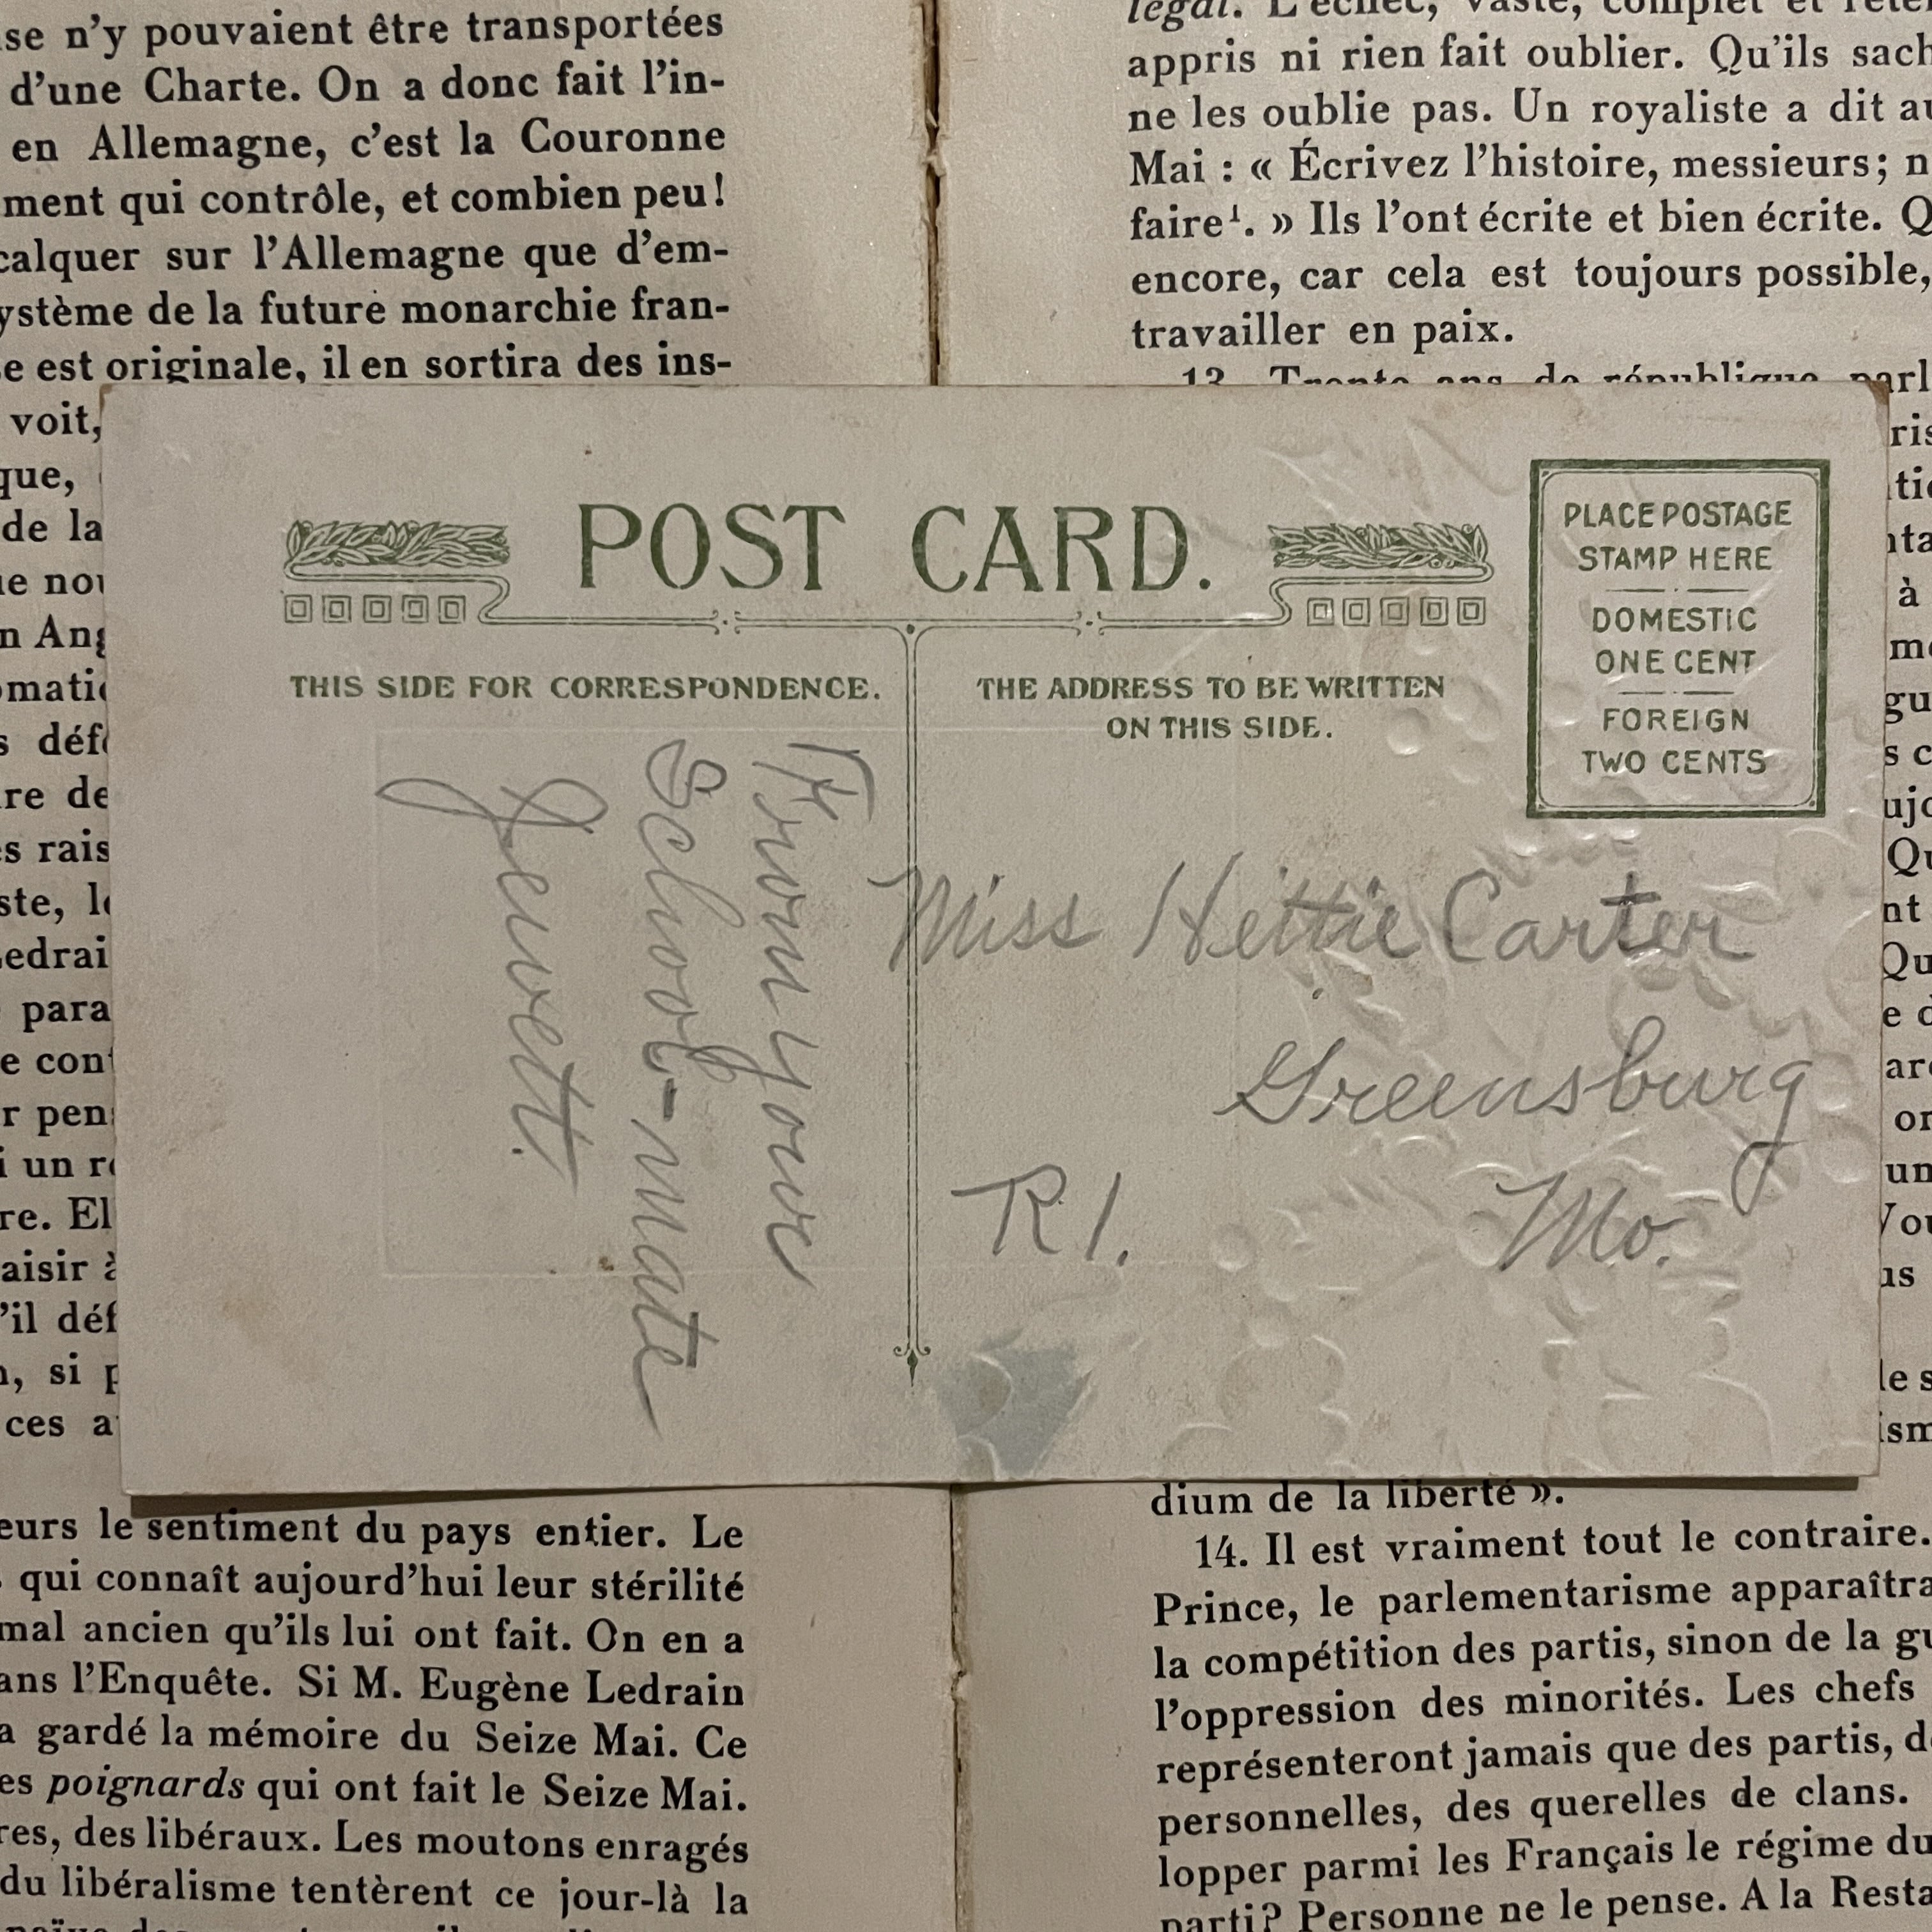 se n'y pouvaient être transportées
d'une Charte. On a donc fait l'in-
en Allemagne, c'est la Couronne
ment qui contrôle, et combien peu!
calquer sur l'Allemagne que d'em-
ystème de la future monarchie fran-
e est originale, il en sortira des ins-
voit,
que,
de la
ue nou
n Ang
omatic
s défe
ire de
es rais
ste, le
Ledrai
para
e cont
r pen
i un re
re. El
aisir à
'il déf
n, si p
ces a
eurs le sentiment du pays entier. Le
qui connaît aujourd'hui leur stérilité
mal ancien qu'ils lui ont fait. On en a
ans l'Enquête. Si M. Eugène Ledrain
a gardé la mémoire du Seize Mai. Ce
es poignards qui ont fait le Seize Mai.
res, des libéraux. Les moutons enragés
du libéralisme tentèrent ce jour-là la
légal. L'échec, vaste, complet et
appris ni rien fait oublier. Qu'ils sach
ne les oublie pas. Un royaliste a dit au
Mai : « Écrivez l'histoire, messieurs; n
faire¹. » Ils l'ont écrite et bien écrite. Q
encore, car cela est toujours possible,
travailler en paix.
13. Trente ans de république parl
dium de la liberté ».
14. Il est vraiment tout le contraire.
Prince, le parlementarisme apparaîtra
la compétition des partis, sinon de la gu
l'oppression des minorités. Les chefs
représenteront jamais que des partis, d
personnelles, des querelles de clans.
lopper parmi les Français le régime du
parti? Personne ne le pense. A la Resta
POST CARD.
THIS SIDE FOR CORRESPONDENCE.
THE ADDRESS TO BE WRITTEN
ON THIS SIDE.
PLACE POSTAGE
STAMP HERE
DOMESTIC
ONE CENT
FOREIGN
TWO CENTS
From your
School-mate
Jewett.
Miss Hettie Carter
Greensburg
R 1. Mo.